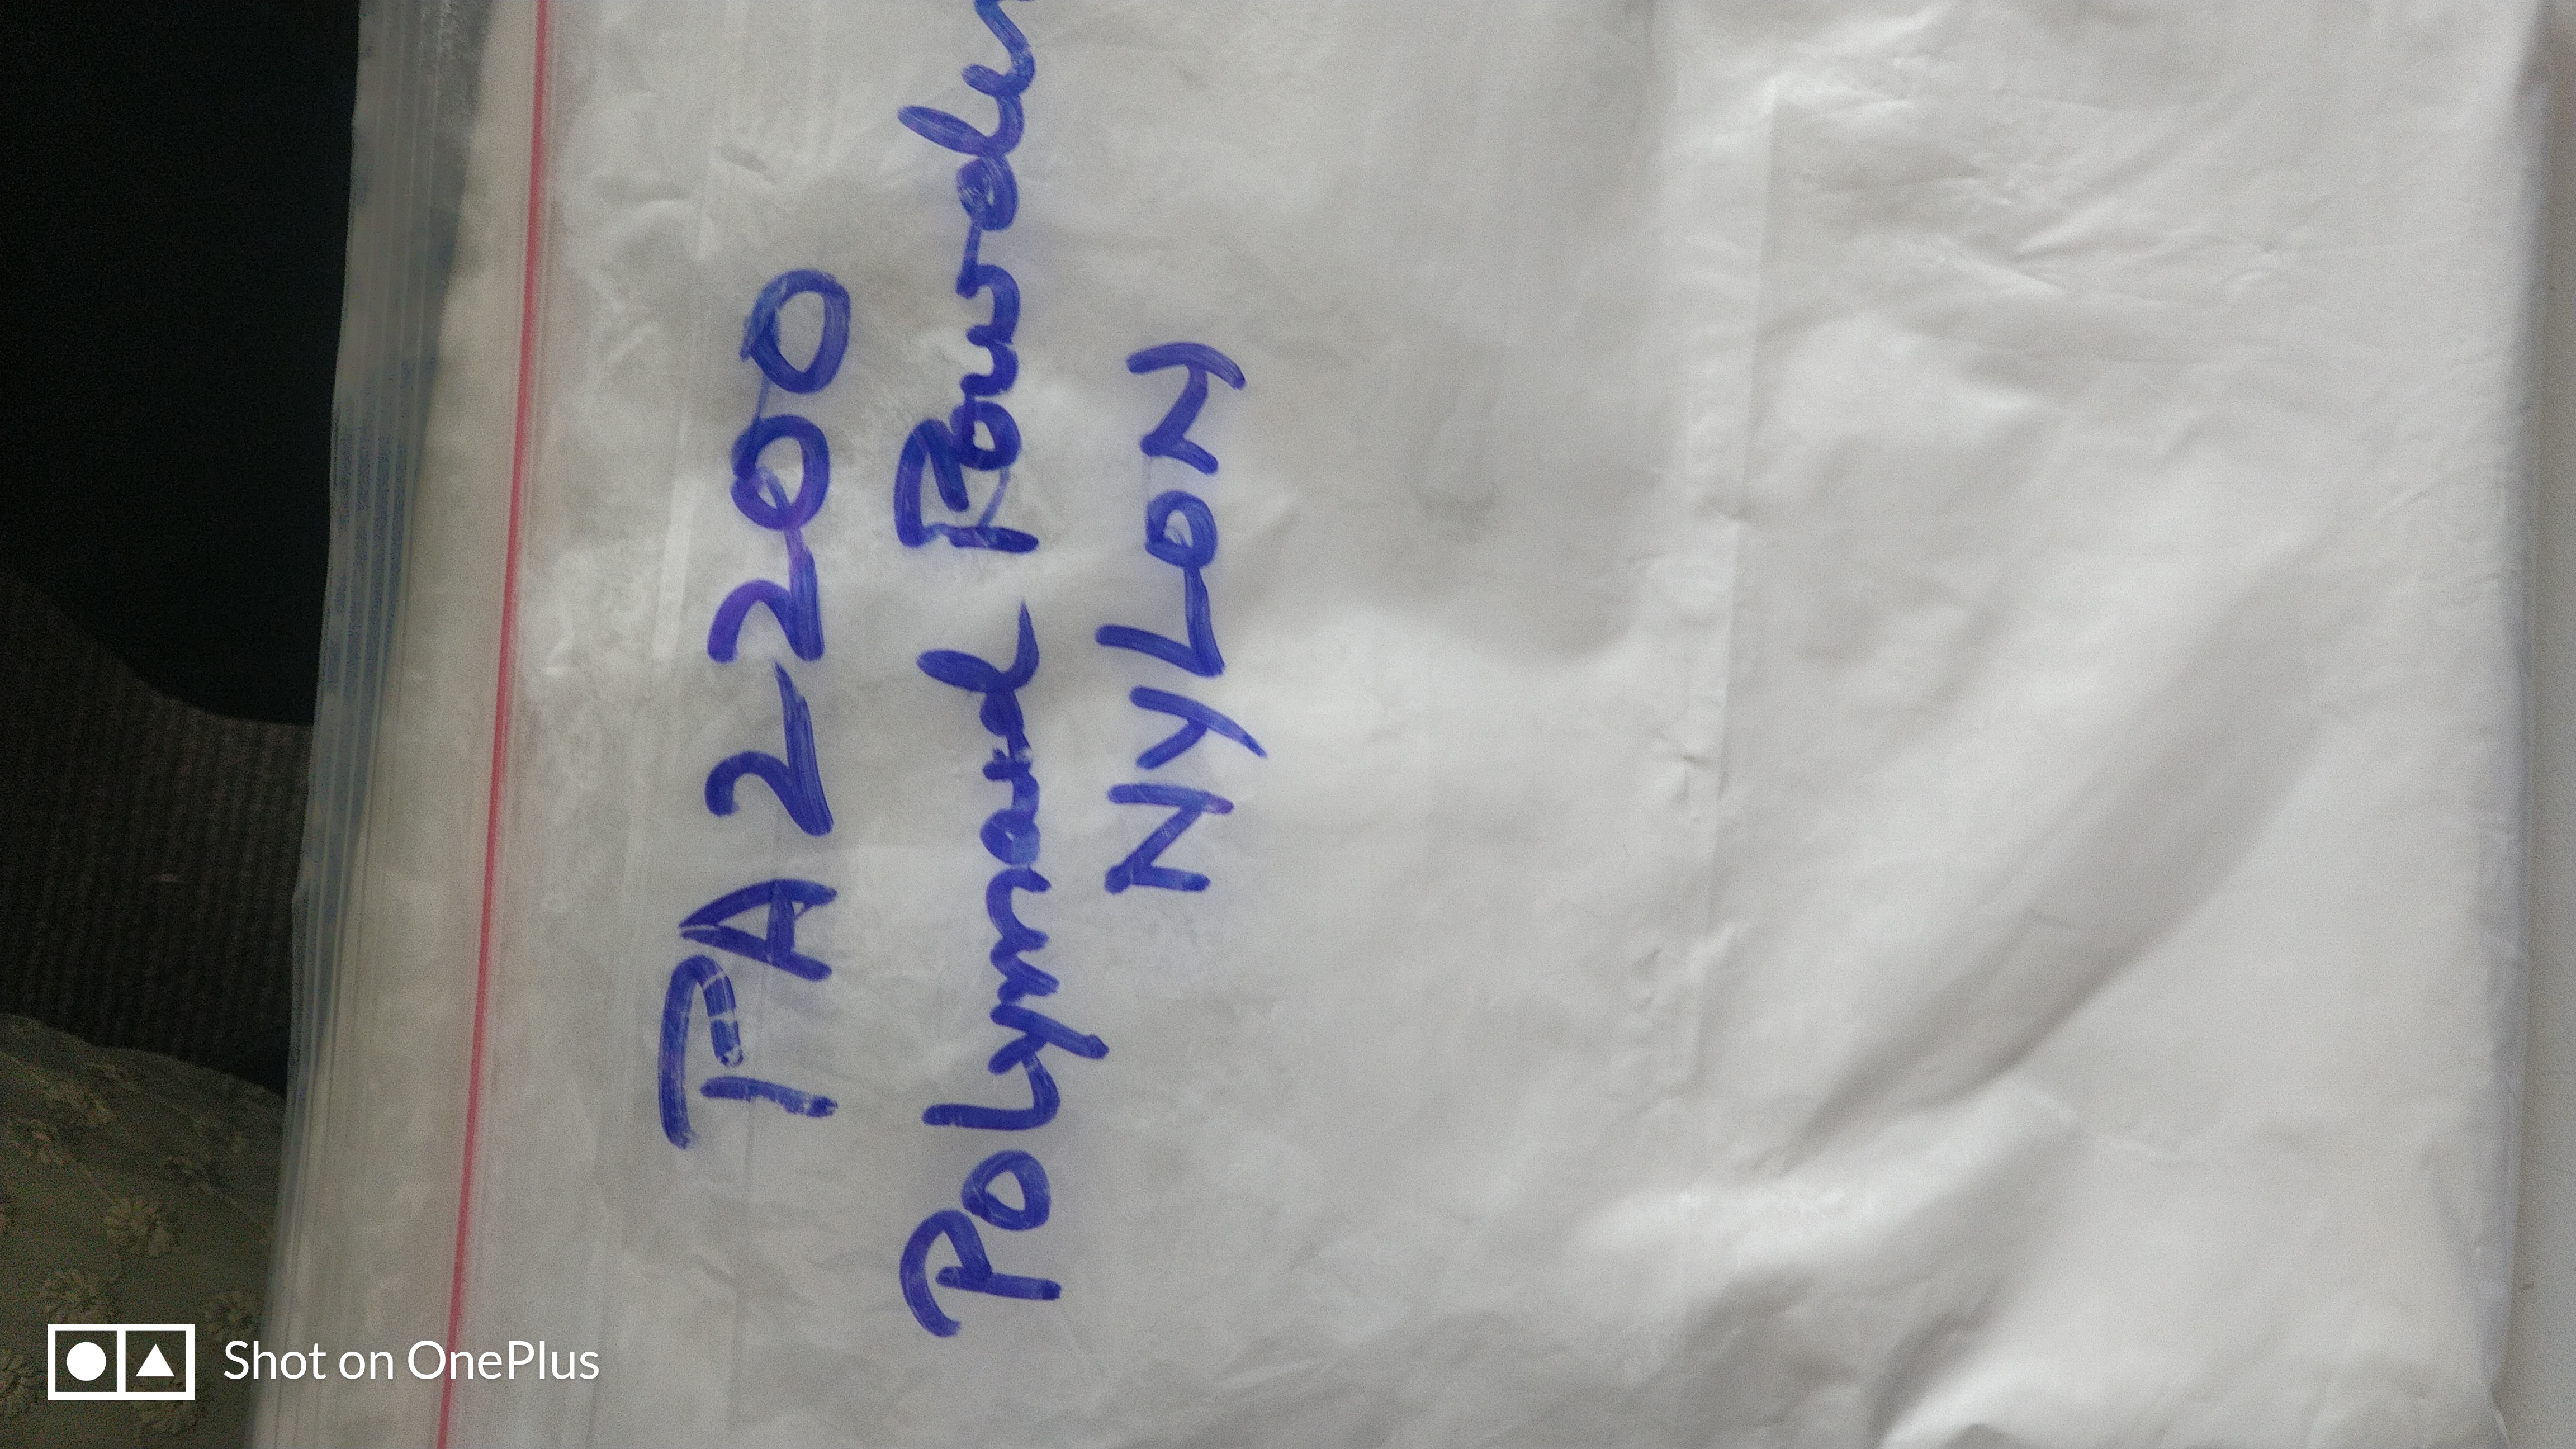 PA 2200
Polymard Powder
NYLON
Shot on OnePlus